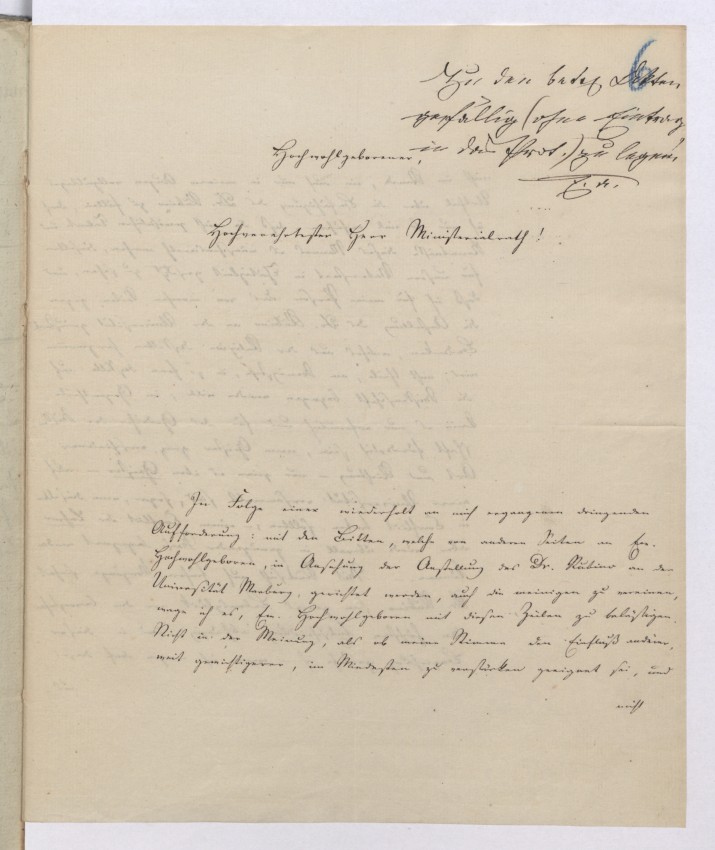 6
Zu den betr. Akten
gefällig (ohne Eintrag
in das Prot.) zu legen.
Hochwohlgeborener,
Hochverehrtester Herr Ministerialrath!
In Folge einer wiederholt an mich ergangenen dringenden
Aufforderung: mit den Bitten, welche von anderen Seiten an Ew.
Hochwohlgeboren, in Ansehung der Anstellung des Dr. Rubino an der
Universität Marburg gerichtet worden, auch die meinigen zu vereinen,
wage ich es, Ew. Hochwohlgeboren mit diesen Zeilen zu belästigen.
Nicht in der Meinung, als ob meine Stimme den Einfluß anderer,
weit gewichtigerer, im Mindesten zu verstärken geeignet sei, und
nicht